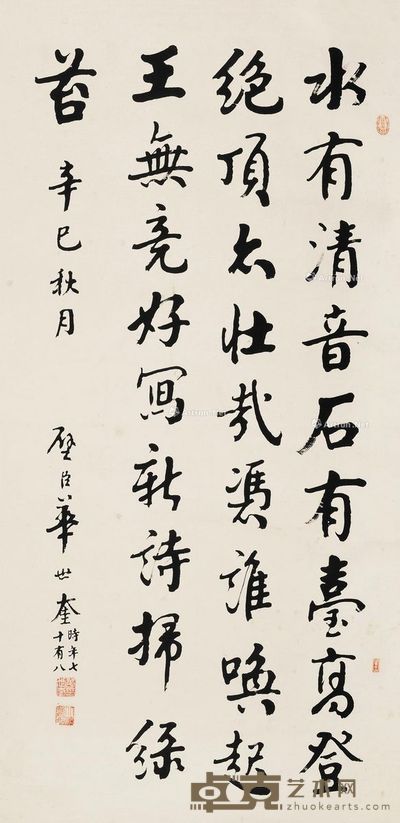 水有清音石有臺高登
絕頂亦壯哉憑誰喚起
王無竞好寫新詩掃綠
苔 辛巳秋月
壁臣華世奎
時年七
十有八
卓克艺术网
zhuokearts.com